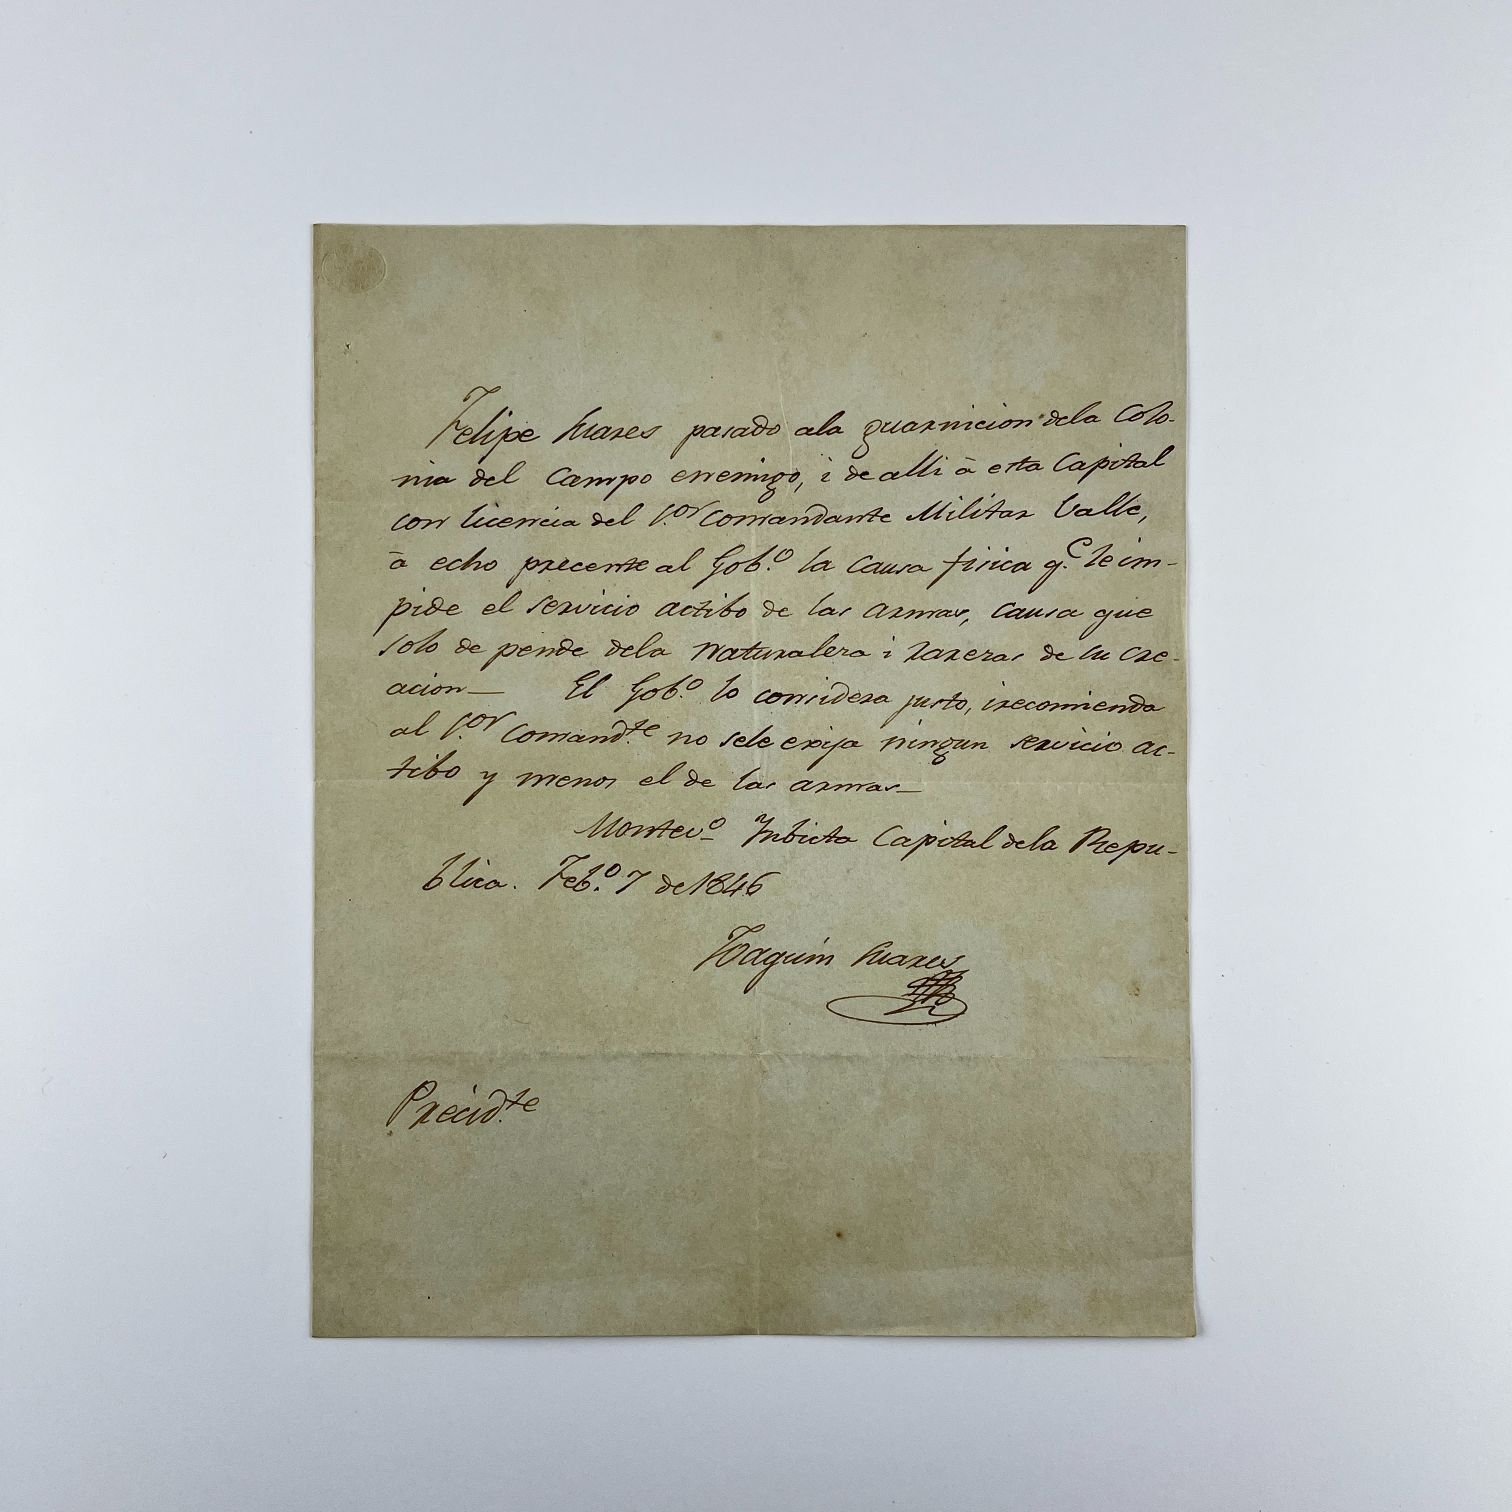 Felipe Suares pasado ala guarnicion dela Colo-
nia del Campo enemigo, i de alli à esta Capital
con licencia del S.or Comandante Militar Valle,
à echo precente al Gob.o la causa fisica q.e le im-
pide el servicio actibo de las armas, causa que
solo de pende dela Naturaleza i rareras de su cre-
acion— El Gob.o lo considera justo, irecomienda
al S.or Comand.te no sele exija ningun servicio ac-
tibo y menos el de las armas—
Montev.o Inbicta Capital dela Repu-
blica. Feb.o 7 de 1846
Joaquin Suares
Précid.te